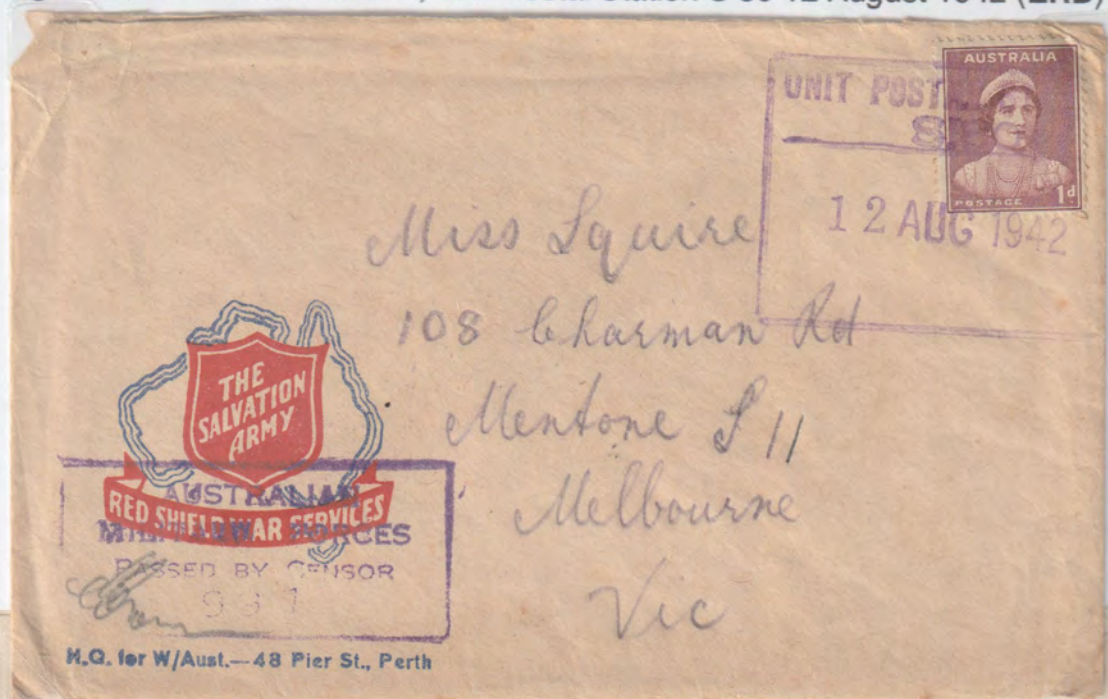 August 1942 (ERD)
AUSTRALIA
POSTAGE 1d
UNIT POST
8
12 AUG 1942
Miss Squire
108 Charman Rd
Mentone S 11
Melbourne
Vic
THE
SALVATION
ARMY
RED SHIELD WAR SERVICES
AUSTRALIAN
MILITARY FORCES
PASSED BY CENSOR
H.Q. for W/Aust.—48 Pier St., Perth